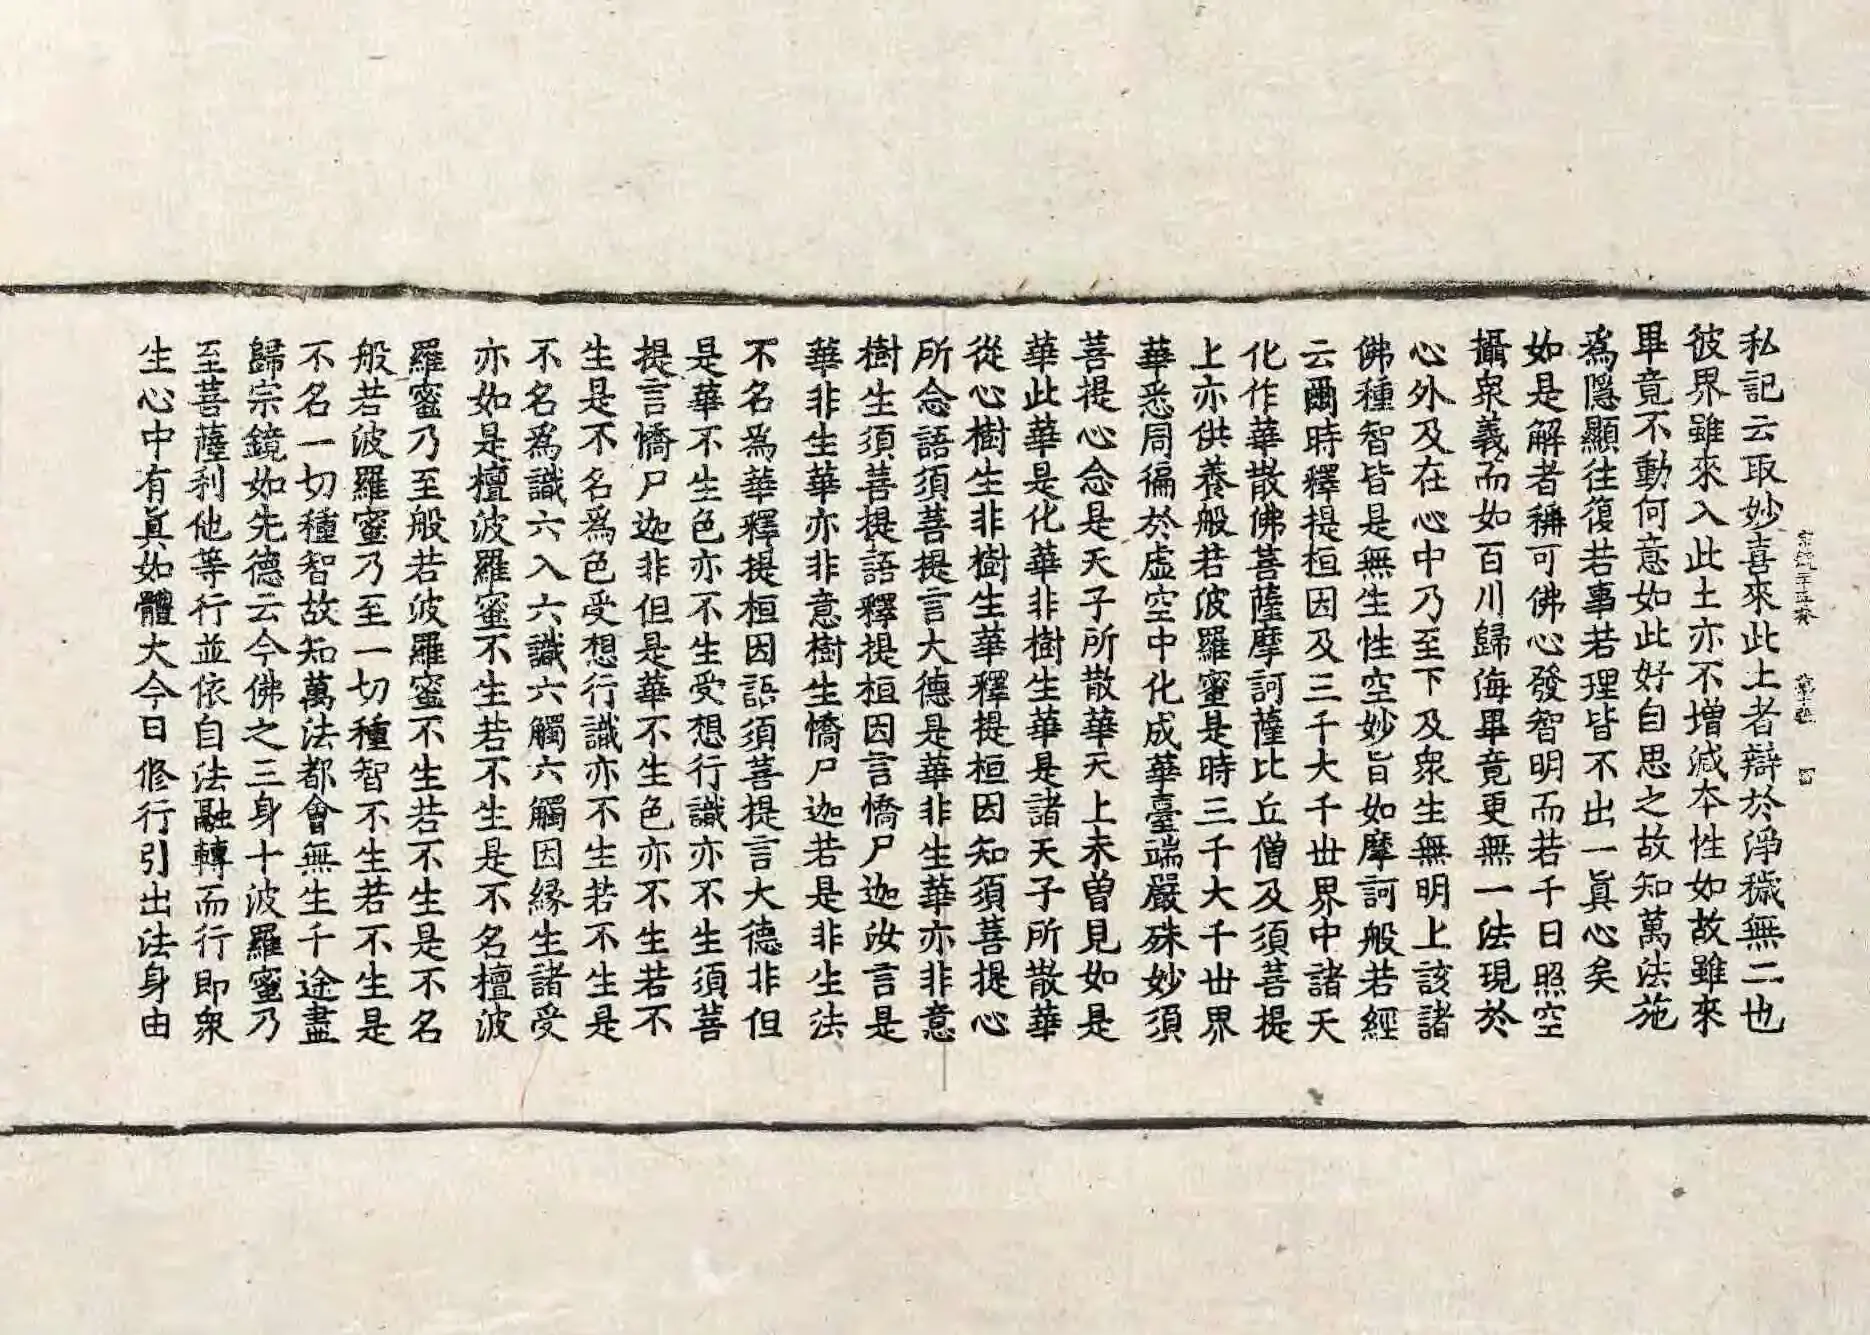 宗鏡二十五卷 第十張 富
私記云取妙喜來此土者辯於淨穢無二也
彼界雖來入此土亦不增減本性如故雖來
畢竟不動何意如此好自思之故知萬法施
爲隱顯往復若事若理皆不出一眞心矣
如是解者稱可佛心發智明而若千日照空
攝衆義而如百川歸海畢竟更無一法現於
心外及在心中乃至下及衆生無明上該諸
佛種智皆是無生性空妙旨如摩訶般若經
云爾時釋提桓因及三千大千世界中諸天
化作華散佛菩薩摩訶薩比丘僧及須菩提
上亦供養般若波羅蜜是時三千大千世界
華悉周徧於虛空中化成華臺端嚴殊妙須
菩提心念是天子所散華天上未曾見如是
華此華是化華非樹生華是諸天子所散華
從心樹生非樹生華釋提桓因知須菩提心
所念語須菩提言大德是華非生華亦非意
樹生須菩提語釋提桓因言憍尸迦汝言是
華非生華亦非意樹生憍尸迦若是非生法
不名爲華釋提桓因語須菩提言大德非但
是華不生色亦不生受想行識亦不生須菩
提言憍尸迦非但是華不生色亦不生若不
生是不名爲色受想行識亦不生若不生是
不名爲識六入六識六觸六觸因緣生諸受
亦如是檀波羅蜜不生若不生是不名檀波
羅蜜乃至般若波羅蜜不生若不生是不名
般若波羅蜜乃至一切種智不生若不生是
不名一切種智故知萬法都會無生千途盡
歸宗鏡如先德云今佛之三身十波羅蜜乃
至菩薩利他等行並依自法融轉而行即衆
生心中有眞如體大今日修行引出法身由